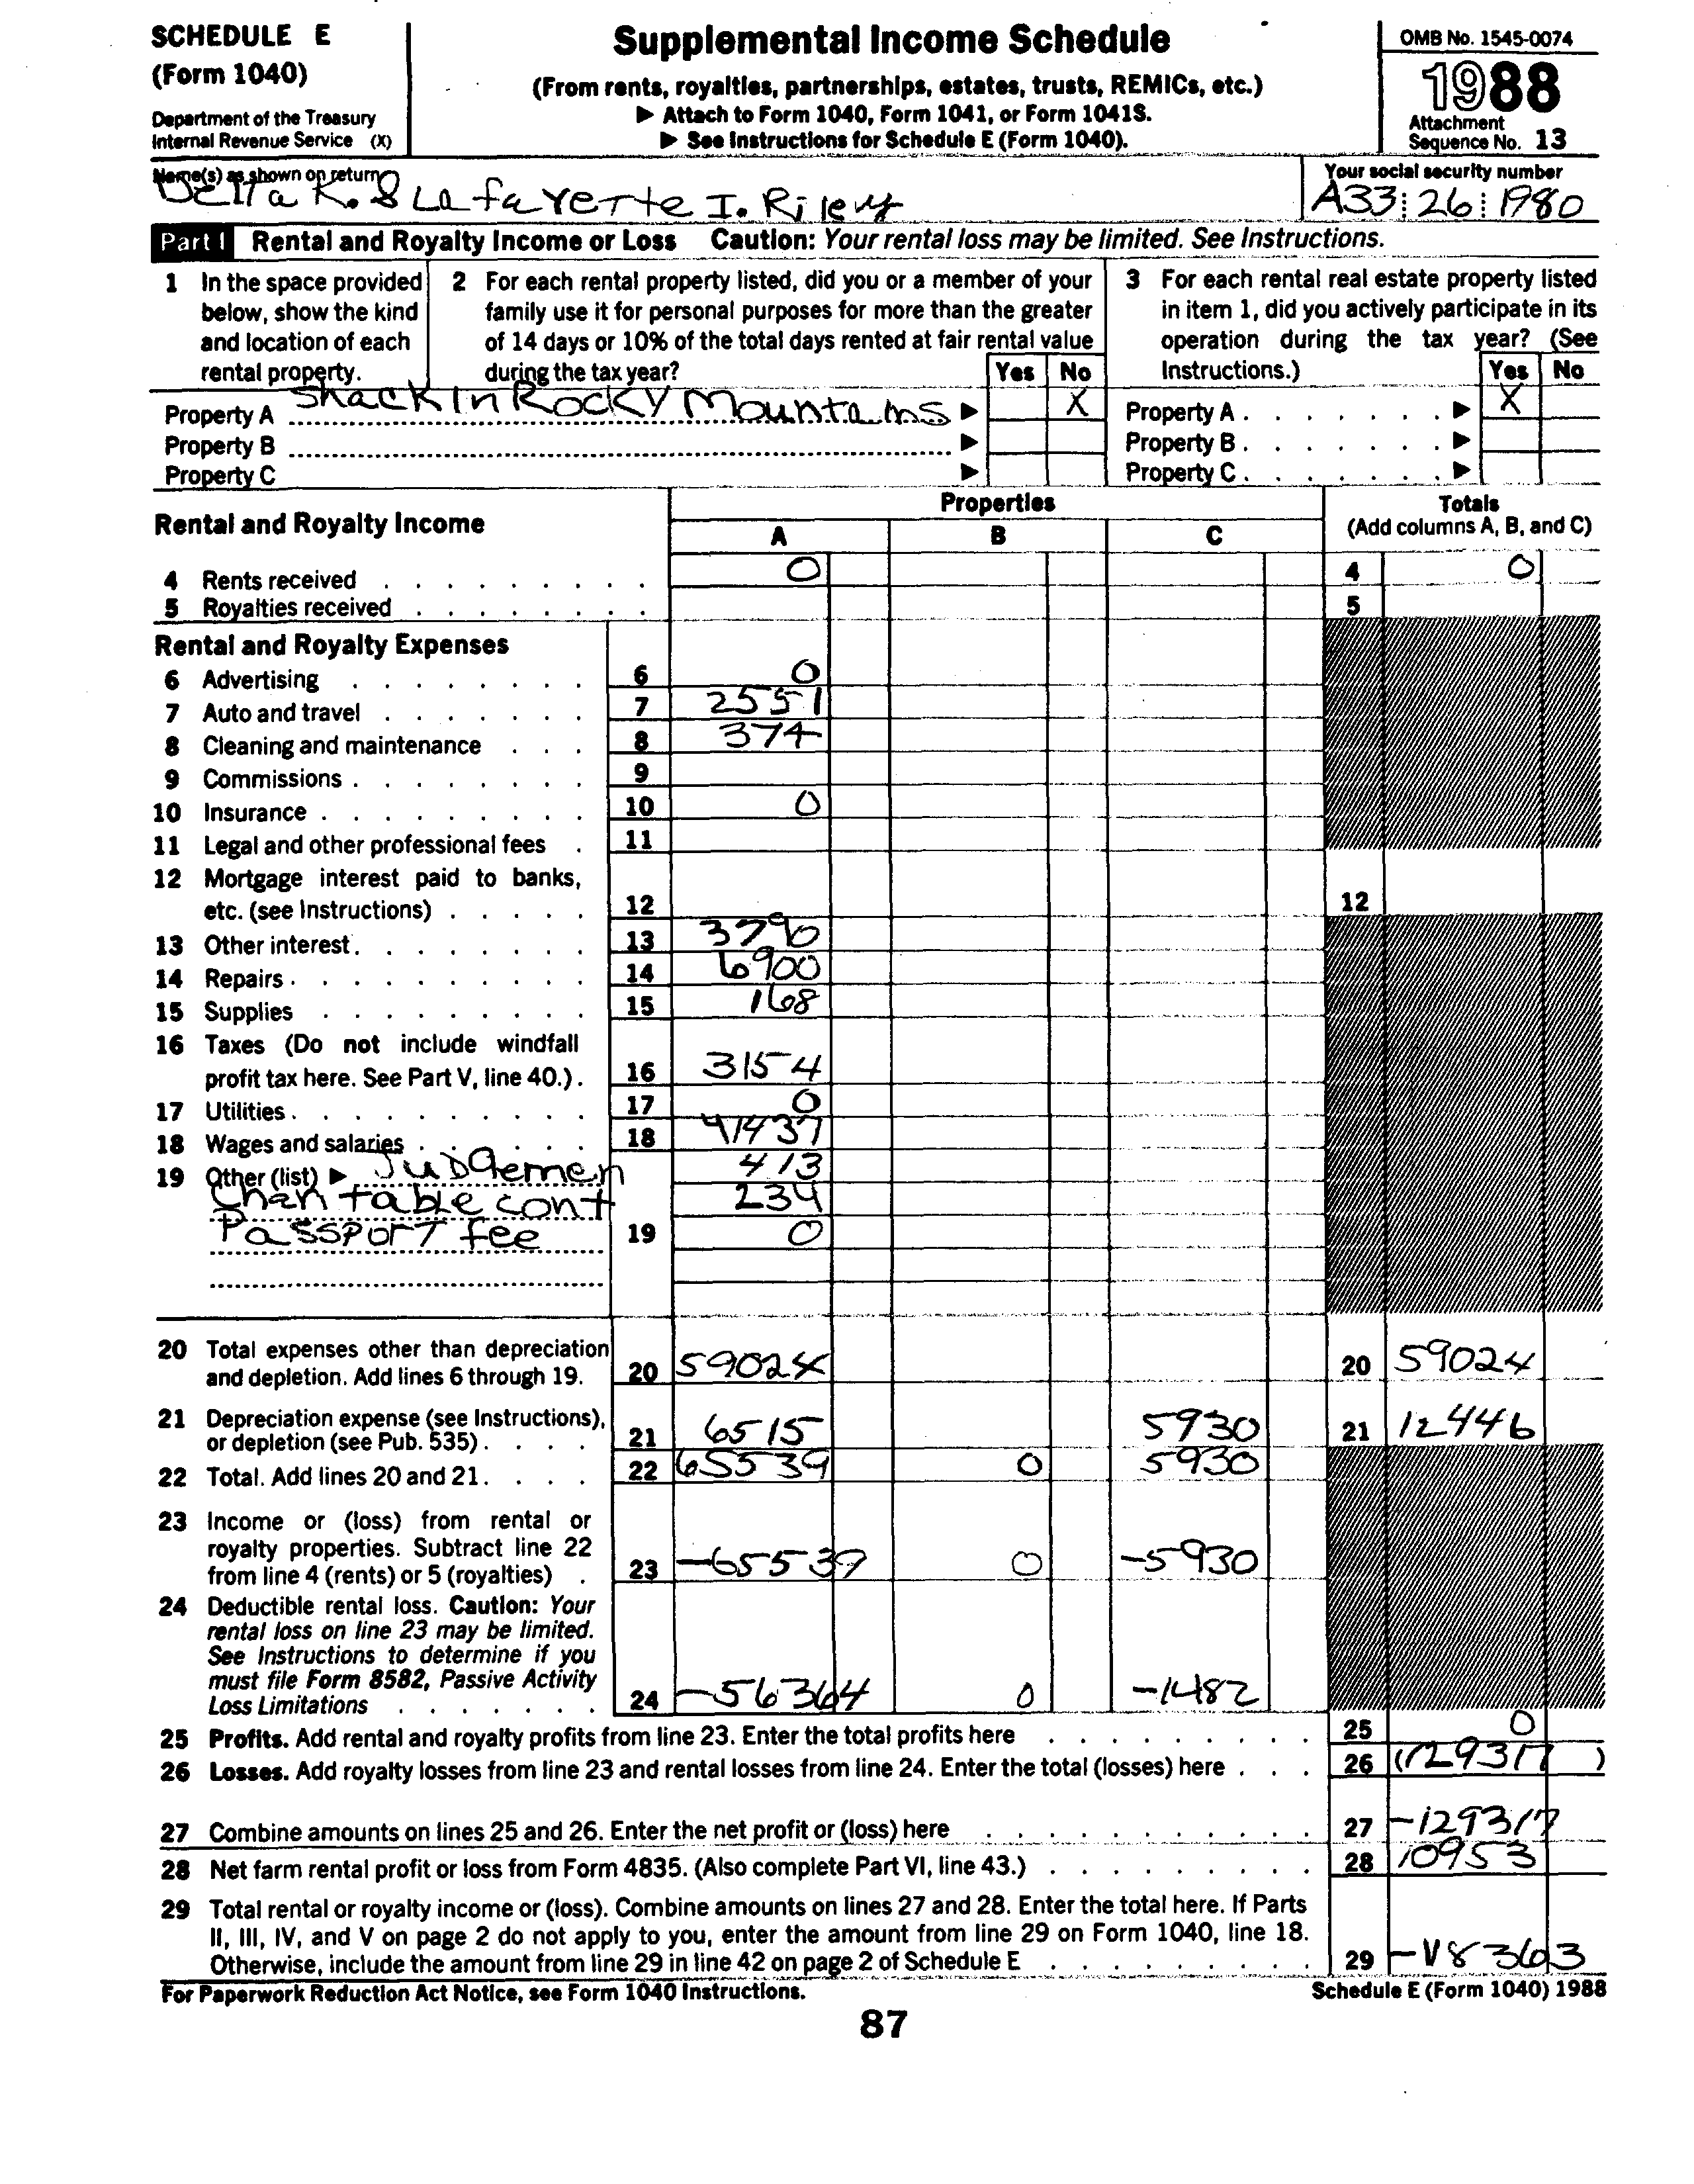 SCHEDULE E
(Form 1040)
Department of the Treasury
Internal Revenue Service (X)
Supplemental Income Schedule
(From rents, royalties, partnerships, estates, trusts, REMICs, etc.)
▶ Attach to Form 1040, Form 1041, or Form 1041S.
▶ See Instructions for Schedule E (Form 1040).
OMB No. 1545-0074
1988
Attachment
Sequence No. 13
Name(s) as shown on return
Delta K. & Lafayette I. Riley
Your social security number
A33 26 1980
Part I Rental and Royalty Income or Loss Caution: Your rental loss may be limited. See Instructions.
1 In the space provided
below, show the kind
and location of each
rental property.
2 For each rental property listed, did you or a member of your
family use it for personal purposes for more than the greater
of 14 days or 10% of the total days rented at fair rental value
during the tax year? Yes No
3 For each rental real estate property listed
in item 1, did you actively participate in its
operation during the tax year? (See
Instructions.) Yes No
Property A Shack In Rocky Mountains ▶ X Property A ▶ X
Property B ▶ Property B ▶
Property C ▶ Property C ▶
Rental and Royalty Income
Properties
A B C
Totals
(Add columns A, B, and C)
4 Rents received 0 4 0
5 Royalties received 5
Rental and Royalty Expenses
6 Advertising 6 0
7 Auto and travel 7 2551
8 Cleaning and maintenance 8 374
9 Commissions 9
10 Insurance 10 0
11 Legal and other professional fees 11
12 Mortgage interest paid to banks,
etc. (see Instructions) 12 12
13 Other interest 13 3790
14 Repairs 14 6900
15 Supplies 15 168
16 Taxes (Do not include windfall
profit tax here. See Part V, line 40.) 16 3154
17 Utilities 17 0
18 Wages and salaries 18 41437
19 Other (list) ▶ Judgemen 413
Charitable cont 234
Passport fee 19 0
20 Total expenses other than depreciation
and depletion. Add lines 6 through 19. 20 59024 20 59024
21 Depreciation expense (see Instructions),
or depletion (see Pub. 535) 21 6515 5930 21 12446
22 Total. Add lines 20 and 21 22 65539 0 5930
23 Income or (loss) from rental or
royalty properties. Subtract line 22
from line 4 (rents) or 5 (royalties) 23 -65539 0 -5930
24 Deductible rental loss. Caution: Your
rental loss on line 23 may be limited.
See Instructions to determine if you
must file Form 8582, Passive Activity
Loss Limitations 24 -56364 0 -1482
25 Profits. Add rental and royalty profits from line 23. Enter the total profits here 25 0
26 Losses. Add royalty losses from line 23 and rental losses from line 24. Enter the total (losses) here 26 (129317)
27 Combine amounts on lines 25 and 26. Enter the net profit or (loss) here 27 -129317
28 Net farm rental profit or loss from Form 4835. (Also complete Part VI, line 43.) 28 10953
29 Total rental or royalty income or (loss). Combine amounts on lines 27 and 28. Enter the total here. If Parts
II, III, IV, and V on page 2 do not apply to you, enter the amount from line 29 on Form 1040, line 18.
Otherwise, include the amount from line 29 in line 42 on page 2 of Schedule E 29
For Paperwork Reduction Act Notice, see Form 1040 Instructions. Schedule E (Form 1040) 1988
87